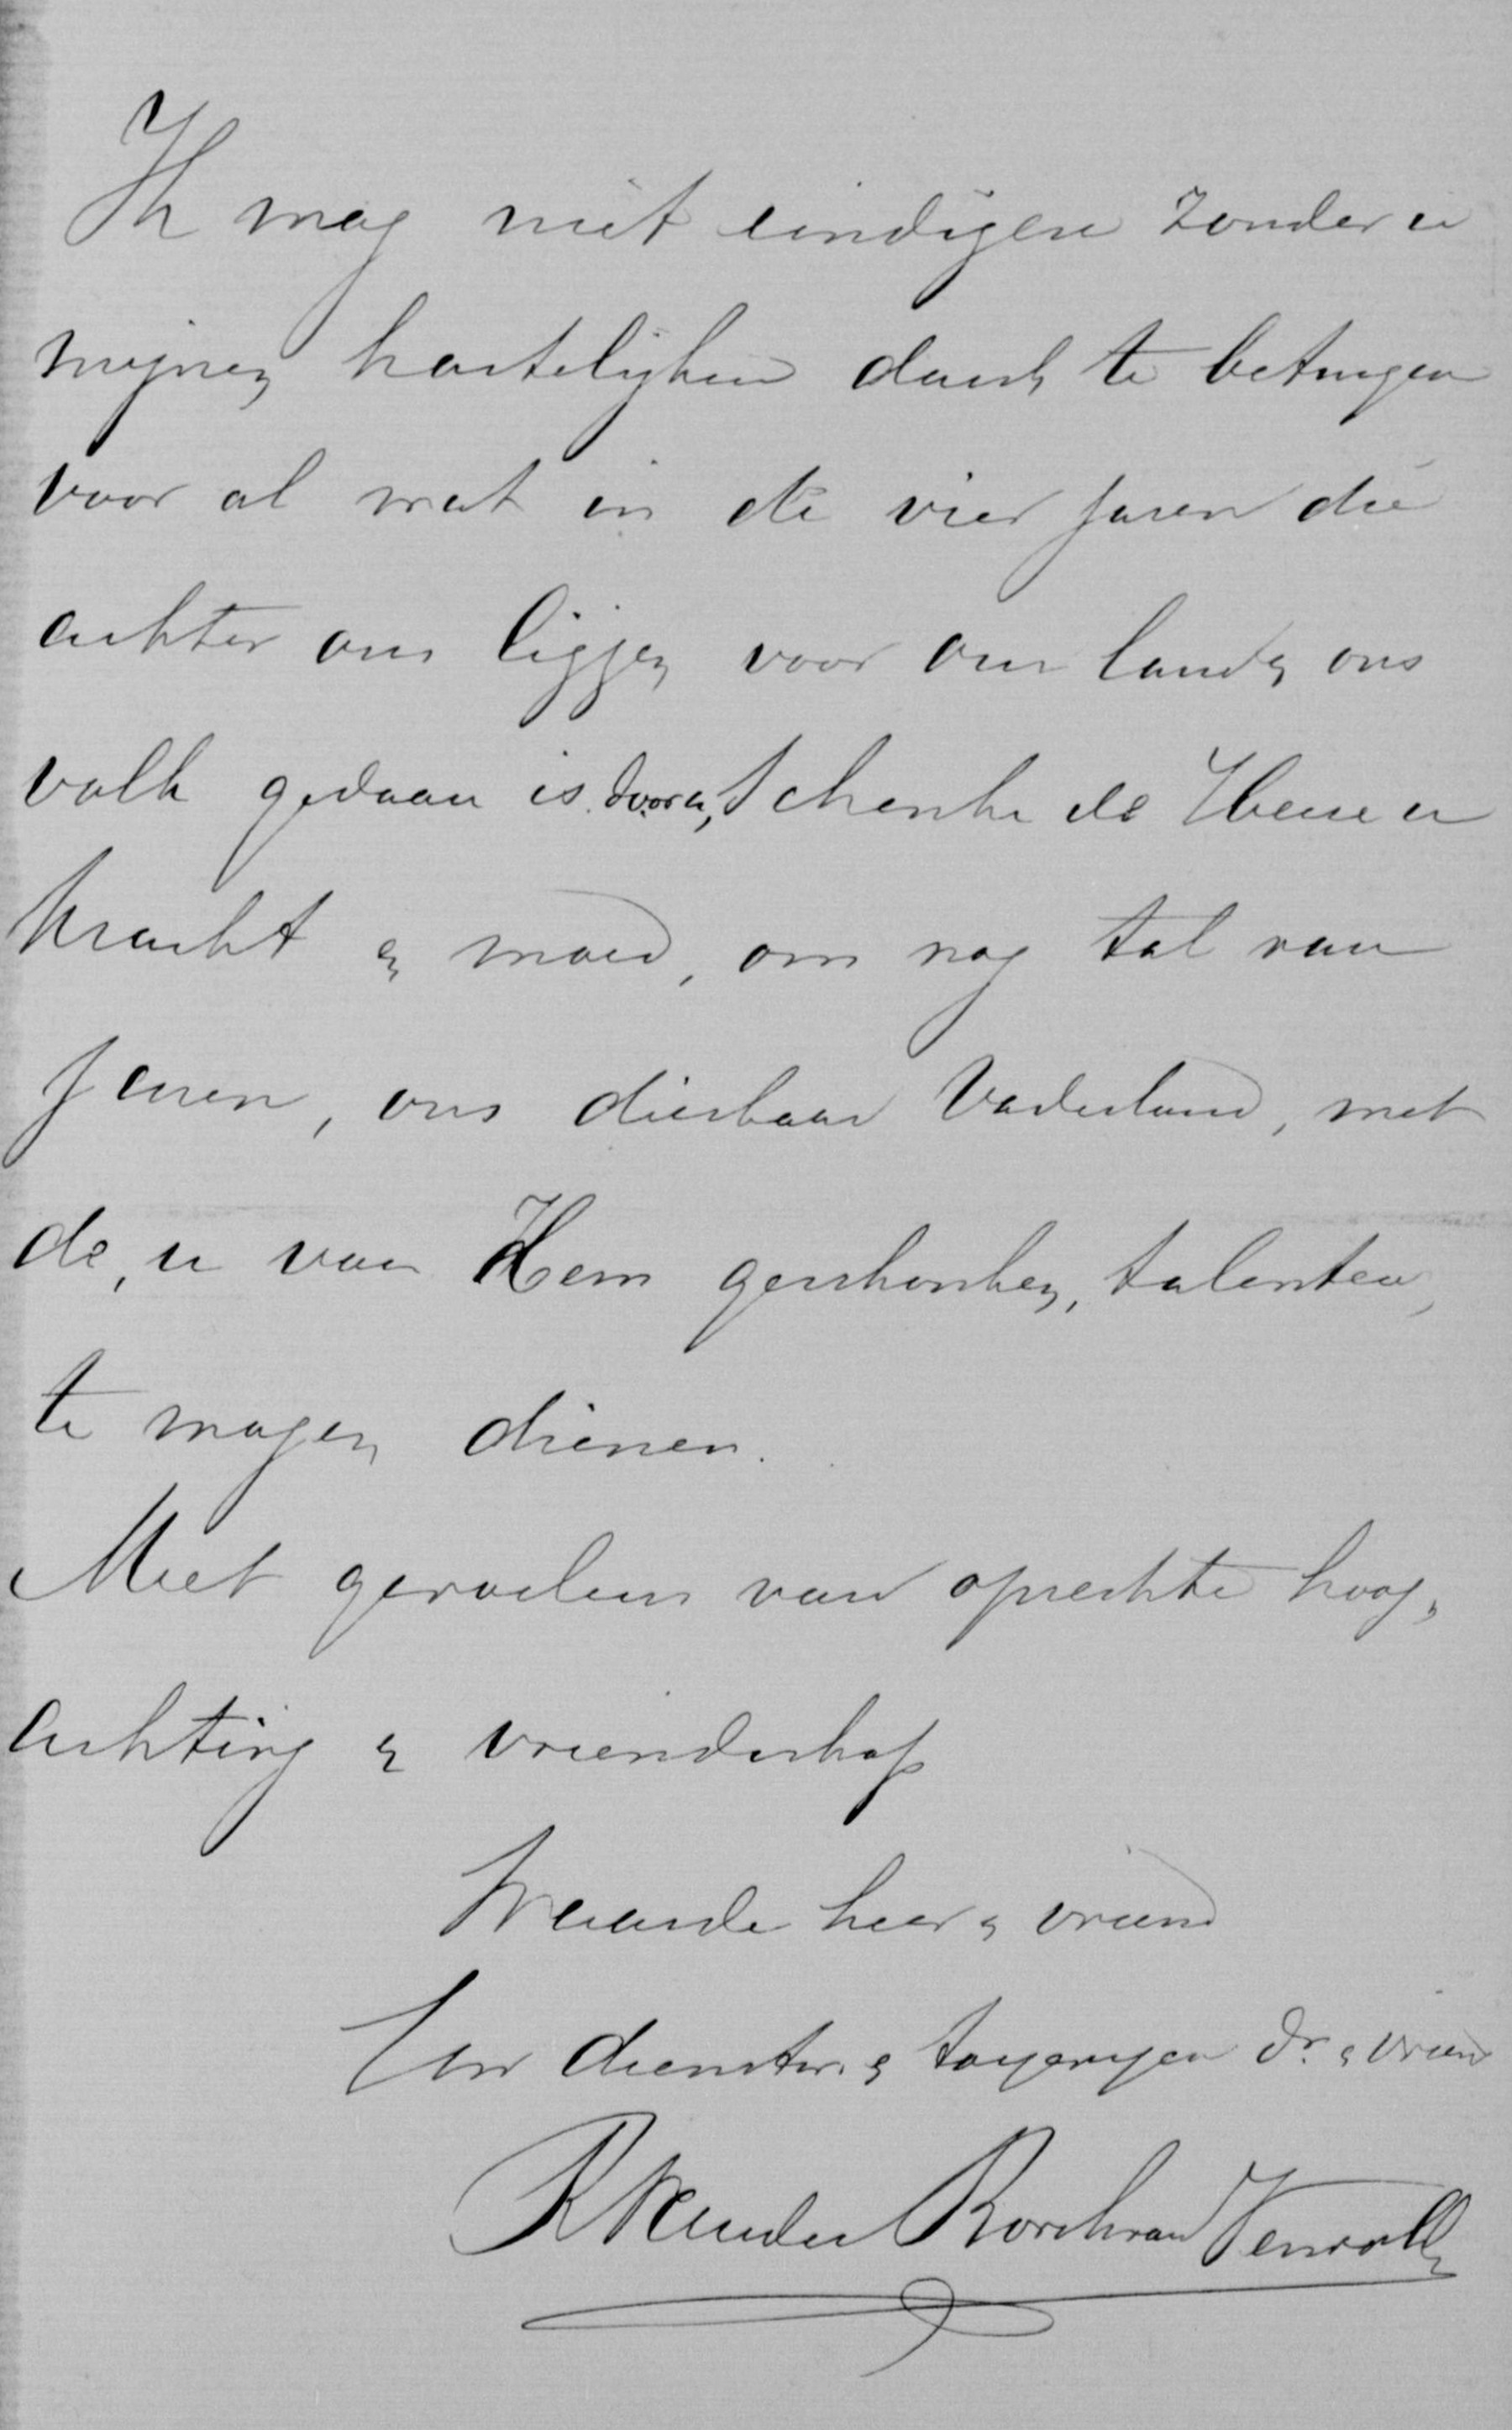 Ik mag niet eindigen zonder u
mijnen hartelijken dank te betuigen
voor al wat in de vier jaren die
achter ons liggen voor ons land & ons
volk gedaan is door u, Schenke de Heere u
kracht & moed, om nog tal van
jaren, ons dierbaar Vaderland, met
de, u van Hem geschonken, talenten,
te mogen dienen.
Met gevoelens van oprechte hoog,
achting & vriendschap
Waarde heer & vriend
Uw dienstw. & toegenegen dr. & vriend
van Verwolde